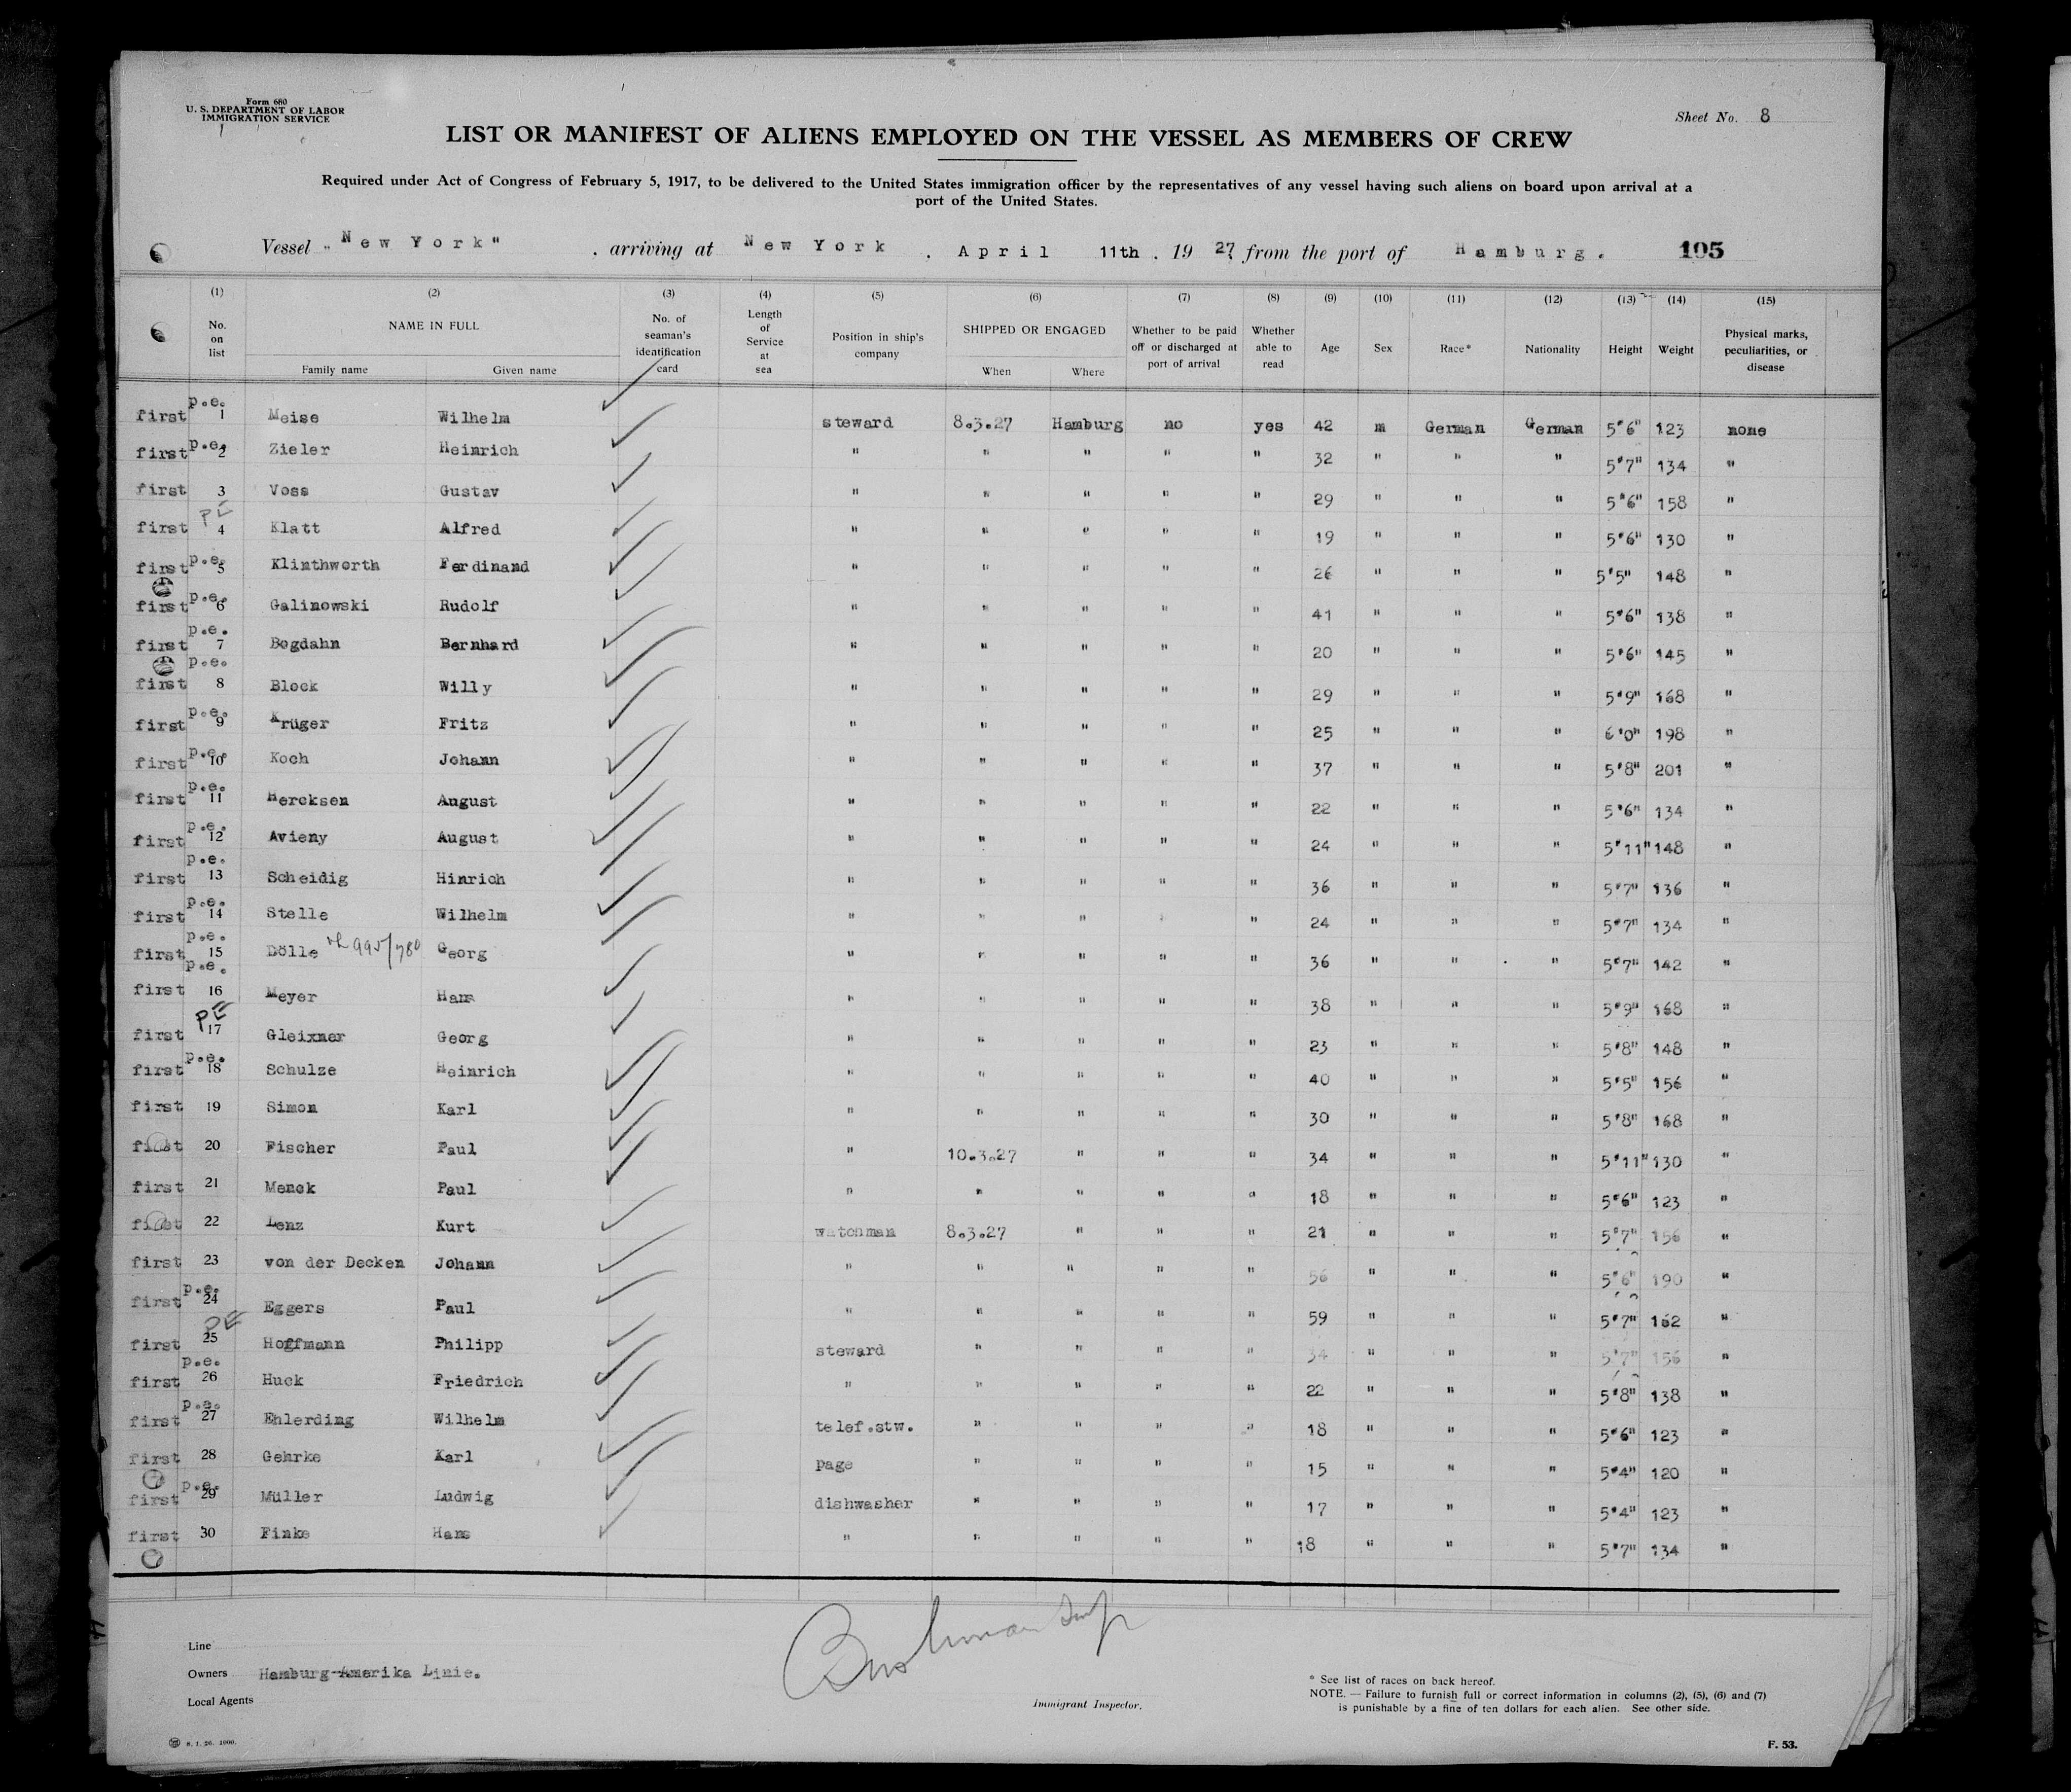 Form 680
U. S. DEPARTMENT OF LABOR
IMMIGRATION SERVICE
Sheet No. 8
LIST OR MANIFEST OF ALIENS EMPLOYED ON THE VESSEL AS MEMBERS OF CREW
Required under Act of Congress of February 5, 1917, to be delivered to the United States immigration officer by the representatives of any vessel having such aliens on board upon arrival at a
port of the United States.
Vessel "New York" , arriving at New York , April 11th , 1927 from the port of Hamburg. 105
(1) (2) (3) (4) (5) (6) (7) (8) (9) (10) (11) (12) (13) (14) (15)
No. on list NAME IN FULL Family name Given name No. of seaman's identification card Length of Service at sea Position in ship's company SHIPPED OR ENGAGED When Where Whether to be paid off or discharged at port of arrival Whether able to read Age Sex Race* Nationality Height Weight Physical marks, peculiarities, or disease
first p.e. 1 Meise Wilhelm steward 8.3.27 Hamburg no yes 42 m German German 5'6" 123 none
first p.e. 2 Zieler Heinrich " " " " " 32 " " " 5'7" 134 "
first 3 Voss Gustav " " " " " 29 " " " 5'6" 158 "
first PE 4 Klatt Alfred " " " " " 19 " " " 5'6" 130 "
first p.e. 5 Klinthworth Ferdinand " " " " " 26 " " " 5'5" 148 "
first p.e. 6 Galinowski Rudolf " " " " " 41 " " " 5'6" 138 "
first p.e. 7 Bogdahn Bernhard " " " " " 20 " " " 5'6" 145 "
first p.e. 8 Block Willy " " " " " 29 " " " 5'9" 168 "
first p.e. 9 Krüger Fritz " " " " " 25 " " " 6'0" 198 "
first p.e. 10 Koch Johann " " " " " 37 " " " 5'8" 201 "
first p.e. 11 Hercksen August " " " " " 22 " " " 5'6" 134 "
first p.e. 12 Avieny August " " " " " 24 " " " 5'11" 148 "
first p.e. 13 Scheidig Hinrich " " " " " 36 " " " 5'7" 136 "
first p.e. 14 Stelle Wilhelm " " " " " 24 " " " 5'7" 134 "
first p.e. 15 Dölle 995/780 Georg " " " " " 36 " " " 5'7" 142 "
first p.e. 16 Meyer Hans " " " " " 38 " " " 5'9" 168 "
first PE 17 Gleixner Georg " " " " " 23 " " " 5'8" 148 "
first p.e. 18 Schulze Heinrich " " " " " 40 " " " 5'5" 156 "
first 19 Simon Karl " " " " " 30 " " " 5'8" 168 "
first 20 Fischer Paul " 10.3.27 " " " 34 " " " 5'11" 130 "
first 21 Menck Paul " " " " " 18 " " " 5'6" 123 "
first 22 Lenz Kurt watchman 8.3.27 " " " 21 " " " 5'7" 156 "
first 23 von der Decken Johann " " " " " 56 " " " 5'6" 190 "
first p.e. 24 Eggers Paul " " " " " 59 " " " 5'7" 162 "
first PE 25 Hoffmann Philipp steward " " " " 34 " " " 5'7" 156 "
first p.e. 26 Huck Friedrich " " " " " 22 " " " 5'8" 138 "
first p.e. 27 Ehlerding Wilhelm telef.stw. " " " " 18 " " " 5'6" 123 "
first 28 Gehrke Karl page " " " " 15 " " " 5'4" 120 "
first p.e. 29 Müller Ludwig dishwasher " " " " 17 " " " 5'4" 123 "
first 30 Finke Hans " " " " " 18 " " " 5'7" 134 "
Line
Owners Hamburg-Amerika Linie.
Local Agents
Immigrant Inspector.
* See list of races on back hereof.
NOTE. — Failure to furnish full or correct information in columns (2), (5), (6) and (7)
is punishable by a fine of ten dollars for each alien. See other side.
8. 1. 26. 1000.
F. 53.